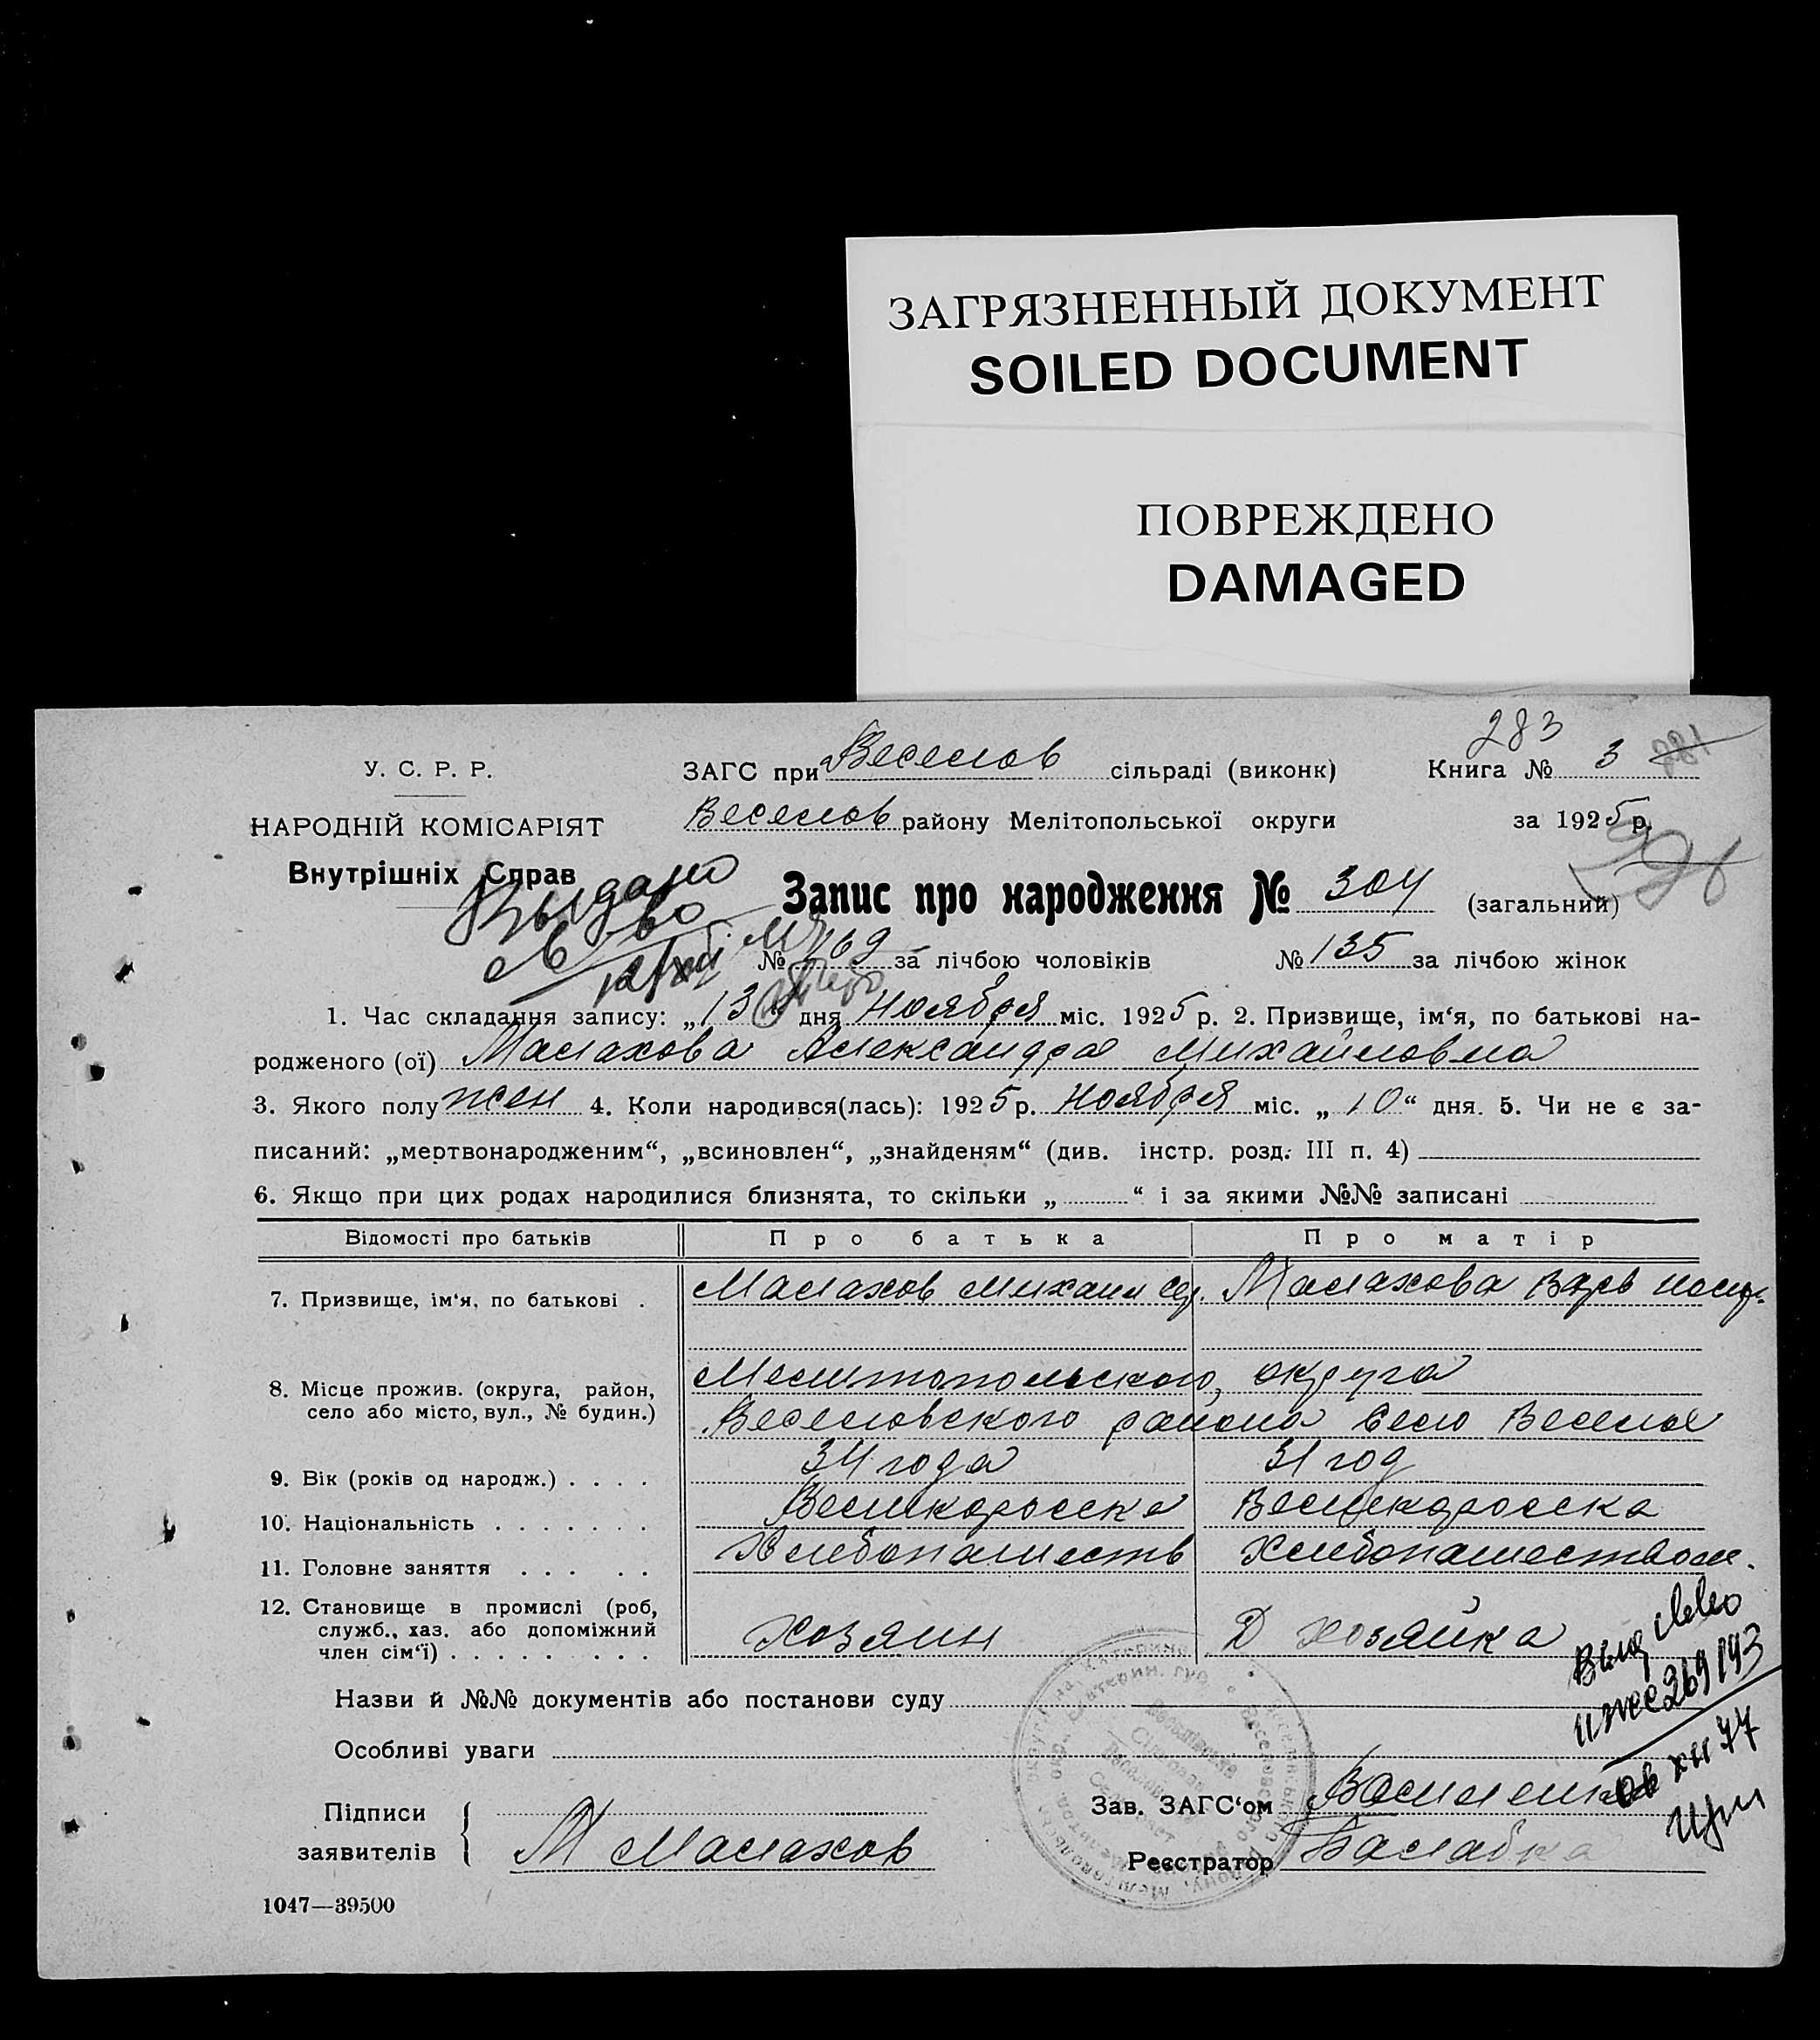 ЗАГРЯЗНЕННЫЙ ДОКУМЕНТ
SOILED DOCUMENT
ПОВРЕЖДЕНО
DAMAGED
283
У. С. Р. Р.
ЗАГС при Веселов сільраді (виконк) Книга № 3
НАРОДНІЙ КОМІСАРІЯТ
Веселов району Мелітопольської округи за 1925 р.
Внутрішніх Справ
Выдано
Запис про народження № 304 (загальний)
№ 169 за лічбою чоловіків № 135 за лічбою жінок
1. Час складання запису: „13“ дня Ноября міс. 1925 р. 2. Призвище, ім‘я, по батькові на-
родженого (ої) Малахова Александра Михайловна
3. Якого полу жен 4. Коли народився(лась): 1925 р. Ноября міс. „10“ дня. 5. Чи не є за-
писаний: „мертвонародженим“, „всиновлен“, „знайденям“ (див. інстр. розд. III п. 4)
6. Якщо при цих родах народилися близнята, то скільки „ “ і за якими №№ записані
Відомості про батьків Про батька Про матір
7. Призвище, ім‘я, по батькові . Малахов Михаил Малахова Варв
8. Місце прожив. (округа, район, село або місто, вул., № будин.)
Мелитопольского округа
Веселовского района Село Веселое
9. Вік (років од народж.) . . . . 34 года 31 год
10. Національність . . . . . . . Великоросска Великоросска
11. Головне заняття . . . . . Хлебопашеств Хлебопашеством.
12. Становище в промислі (роб, служб., хаз. або допоміжний член сім‘ї) . . . . . . . . Хозяин Д хозяйка
Назви й №№ документів або постанови суду
Особливі уваги
Підписи заявителів М Малахов
Зав. ЗАГС‘ом Василенко
Реєстратор Балабка
1047—39500